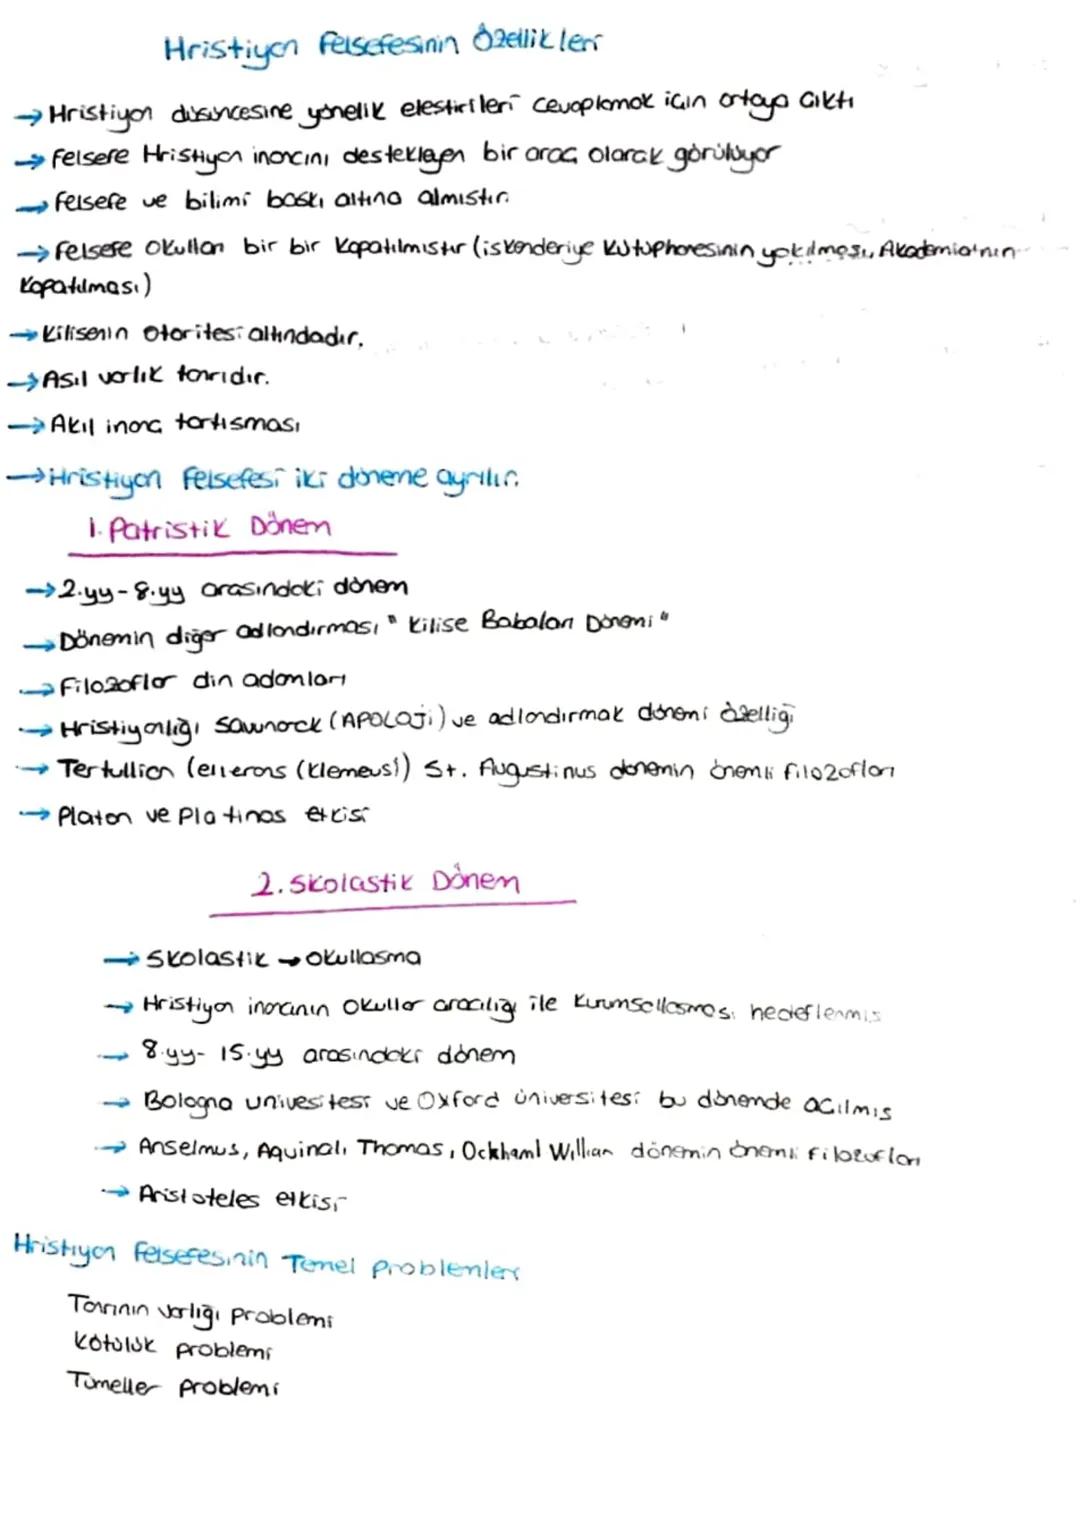 Hristiyan Felsefesinin Özellikleri
→ Hristiyan düşüncesine yönelik eleştirileri cevaplamak için ortaya çıktı
→ Felsefe Hristiyan inancını destekleyen bir araç olarak görülüyor
→ Felsefe ve bilimi baskı altına almıştır.
→ Felsefe Okulları bir bir kapatılmıştır (iskenderiye kütüphanesinin yakılması, Akademia'nın
kapatılması)
→ Kilisenin otoritesi altındadır.
→ Asıl varlık tanrıdır.
→ Akıl inanç tartışması
→ Hristiyan Felsefesi iki döneme ayrılır.
1. Patristik Dönem
→ 2.yy - 8.yy arasındaki dönem
→ Dönemin diğer adlandırması "Kilise Babaları Dönemi"
→ Filozoflar din adamları
→ Hristiyanlığı savunarck (APOLOJi) ve adlandırmak dönemi özelliği
→ Tertullian (Klemeus!)) St. Augustinus dönemin önemli filozofları
→ Platon ve Platinos etkisi
2. Skolastik Dönem
→ Skolastik → Okullaşma
→ Hristiyan inancının Okullar aracılığı ile kurumsallaşması hedeflenmiş
→ 8.yy - 15.yy arasındaki dönem
→ Bologna univesitesi ve Oxford üniversitesi bu dönemde açılmış
→ Anselmus, Aquinalı Thomas, Ockhaml Willian dönemin önemli filozofları
→ Aristoteles etkisi
Hristiyan Felsefesinin Temel Problemler
Tanrının Varlığı Problemi
Kötülük problemi
Tümeller Problemi